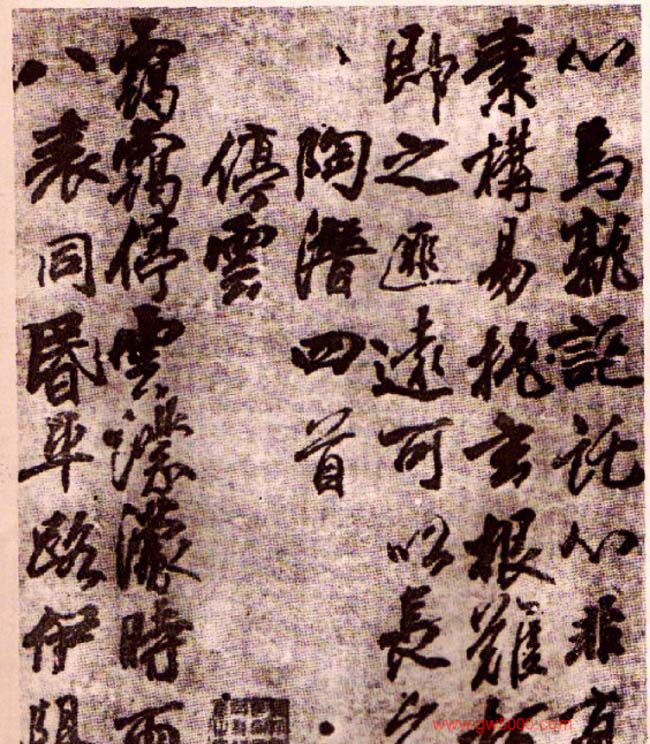 心焉孰託託心非有
素構易抱玄根難
即之匪遠可以長久
陶潛四首
停雲
靄靄停雲濛濛時雨
八表同昏平路伊阻
www.gw5000.com